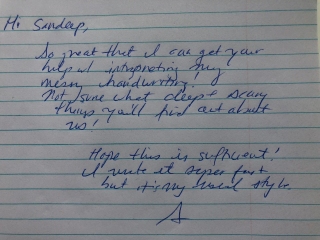 Hi Sandeep,
So great that I can get your
help w/ interpreting my
messy handwriting!
Not sure what deep + scary
things you'll find out about
us!
Hope this is sufficient!
I wrote it super fast
but it's my usual style.